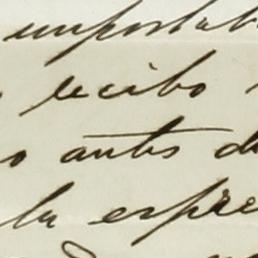 importab
recibo
o antes d
la espre